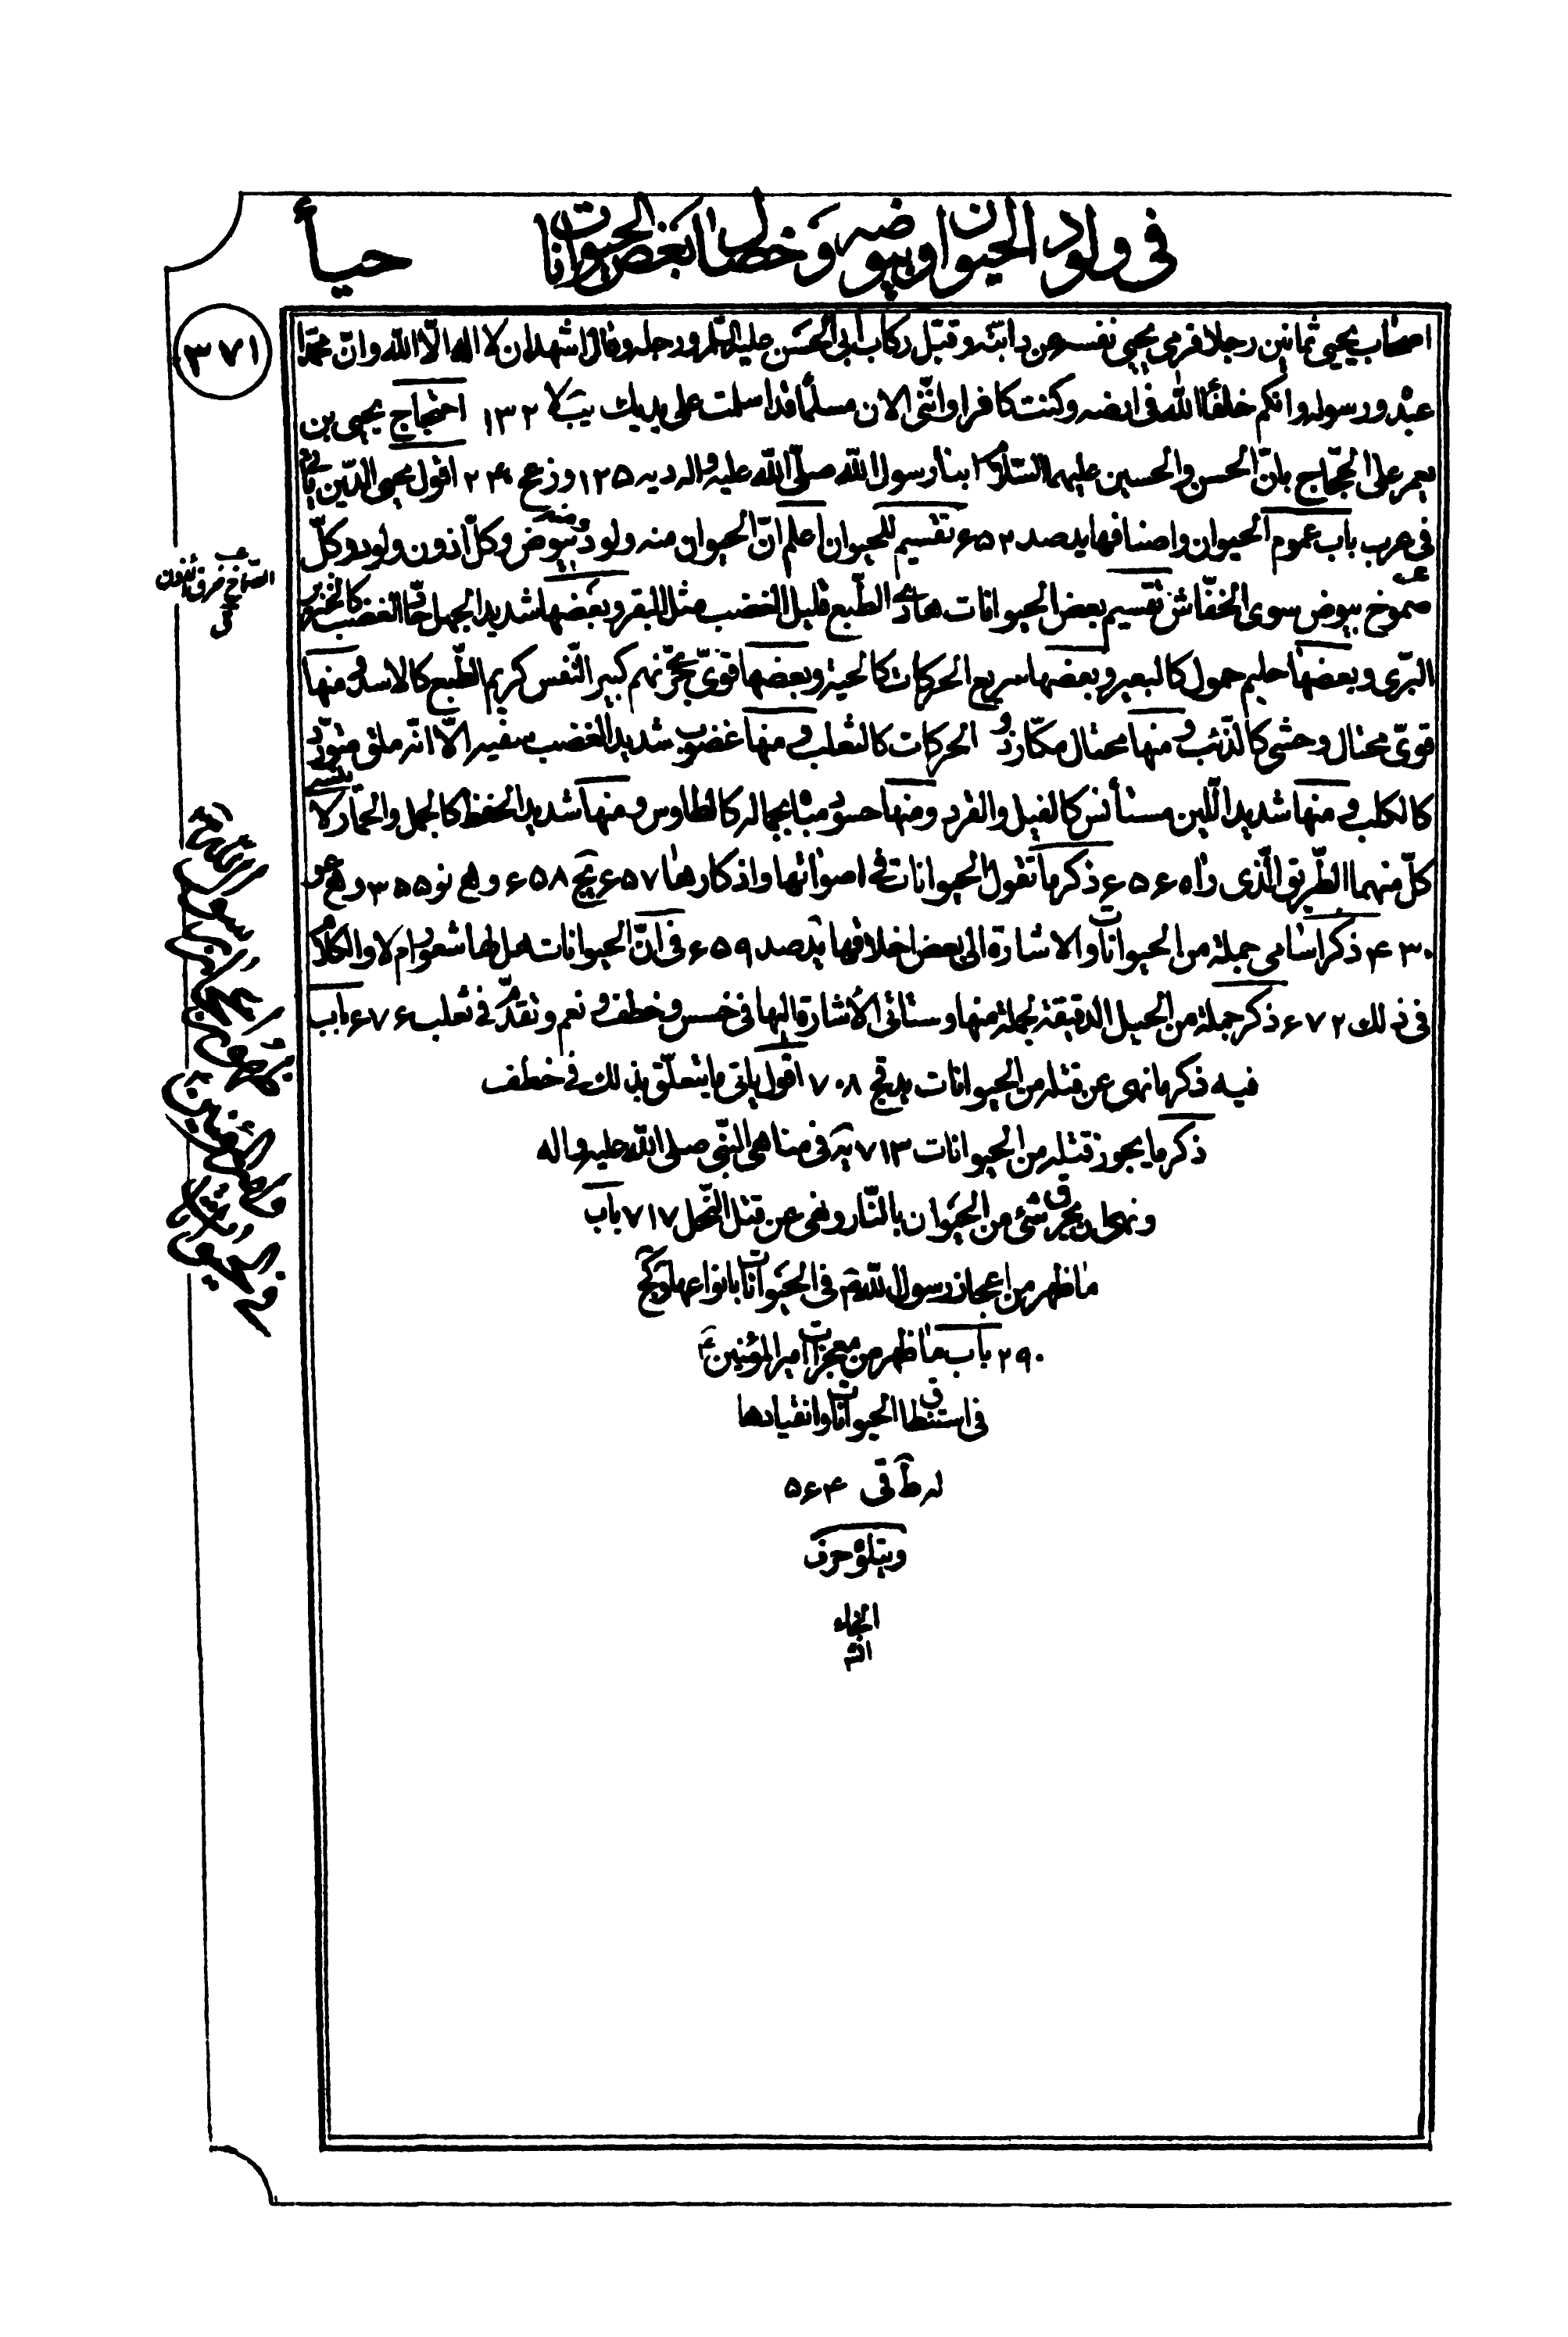 في ولود الحيوان وبيوضه وخصال بعض الحيوانات
حيأ
٣٧١
اصحاب يحيى ثمانين رجلا فرمى يحيى نفسه عن دابته وقبّل ركاب ابي الحسن عليه السّلم ورجله وقال اشهد ان لا اله الّا الله وانّ محمّدا
عبده ورسوله وانكم خلفاء الله في ارضه وكنت كافرا وانّني الان مسلما قد اسلمت على يديك يب لا ١٣٢ احتجاج يحيى بن
يعمر على الحجّاج بانّ الحسن والحسين عليهما السّلام ابنا رسول الله صلّى الله عليه واله د يه ١٢٥ و ز عج ٢٤ اقول محيى الدّين ياتى
في عرب باب عموم الحيوان واصنافها يد صد ٦٥٢ تقسيم للحيوان اعلم انّ الحيوان منه ولود ومنه بيوض وكلّ اذون ولود وكلّ
صموخ بيوض سوى الخفّاش تقسيم بعض الحيوانات هادى الطّبع قليل الغضب مثل البقر وبعضها شديد الجهل حادّ الغضب كالخنزير
البرّى وبعضها حليم حمول كالبعير وبعضها سريع الحركات كالحية وبعضها قوىّ جرّى نهم كبير النّفس كريم الطّبع كالاسد ومنها
قوىّ محتال وحشى كالذّئب ومنها محتال مكّار ردى الحركات كالثعلب ومنها غضوب شديد الغضب سفيه الّا انّه ملق متودّد
كالكلب ومنها شديد اللّين مستأنس كالفيل والقرد ومنها حسود مباه بجماله كالطاوس ومنها شديد الحفظ كالجمل والحمار لا ينسى
كلّ منهما الطّريق الّذى راه ٦٥٦ ذكر ما تقول الحيوانات في اصواتها واذكارها ٦٥٧ يج ٦٥٨ و ه نو ٣٥٥ و ه عو
٤٣٠ ذكر اسامى جملة من الحيوانات والاشارة الى بعض اخلاقها يد صد ٦٥٩ في انّ الحيوانات هل لها شعور ام لا والكلام
في ذلك ٦٧٢ ذكر جملة من الحيل الدقيقة لجملة منها وستاتى الاشارة اليها في خسس وخطف ونعم وتقدّم في ثعلب ٦٧٦ باب
فيه ذكر ما نهى عن قتله من الحيوانات يد قج ٧٠٨ اقول ياتى ما يتعلّق بذلك في خطف
ذكر ما يجوز قتله من الحيوانات ٧١٣ يه في مناهى النّبى صلى الله عليه واله
ونهى ان يحرق شئ من الحيوان بالنّار ونهى عن قتل النّحل ٧١٧ باب
ما ظهر من اعجاز رسول الله ص في الحيوانات بانواعها و كج
٢٩٠ باب ما ظهر من معجزات امير المؤمنين ع
في استنطاق الحيوانات وانقيادها
له ط قى ٥٦٤
ويتلوه حرف
الخاء
انش